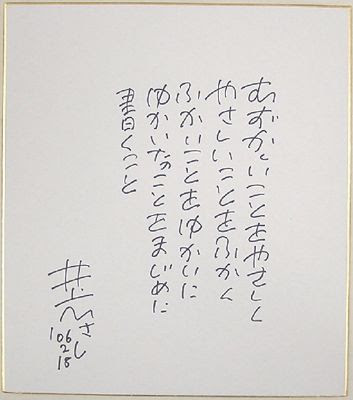 むずかしいことをやさしく
やさしいことをふかく
ふかいことをゆかいに
ゆかいなことをまじめに
書くこと
井上ひさし
'06
2
18